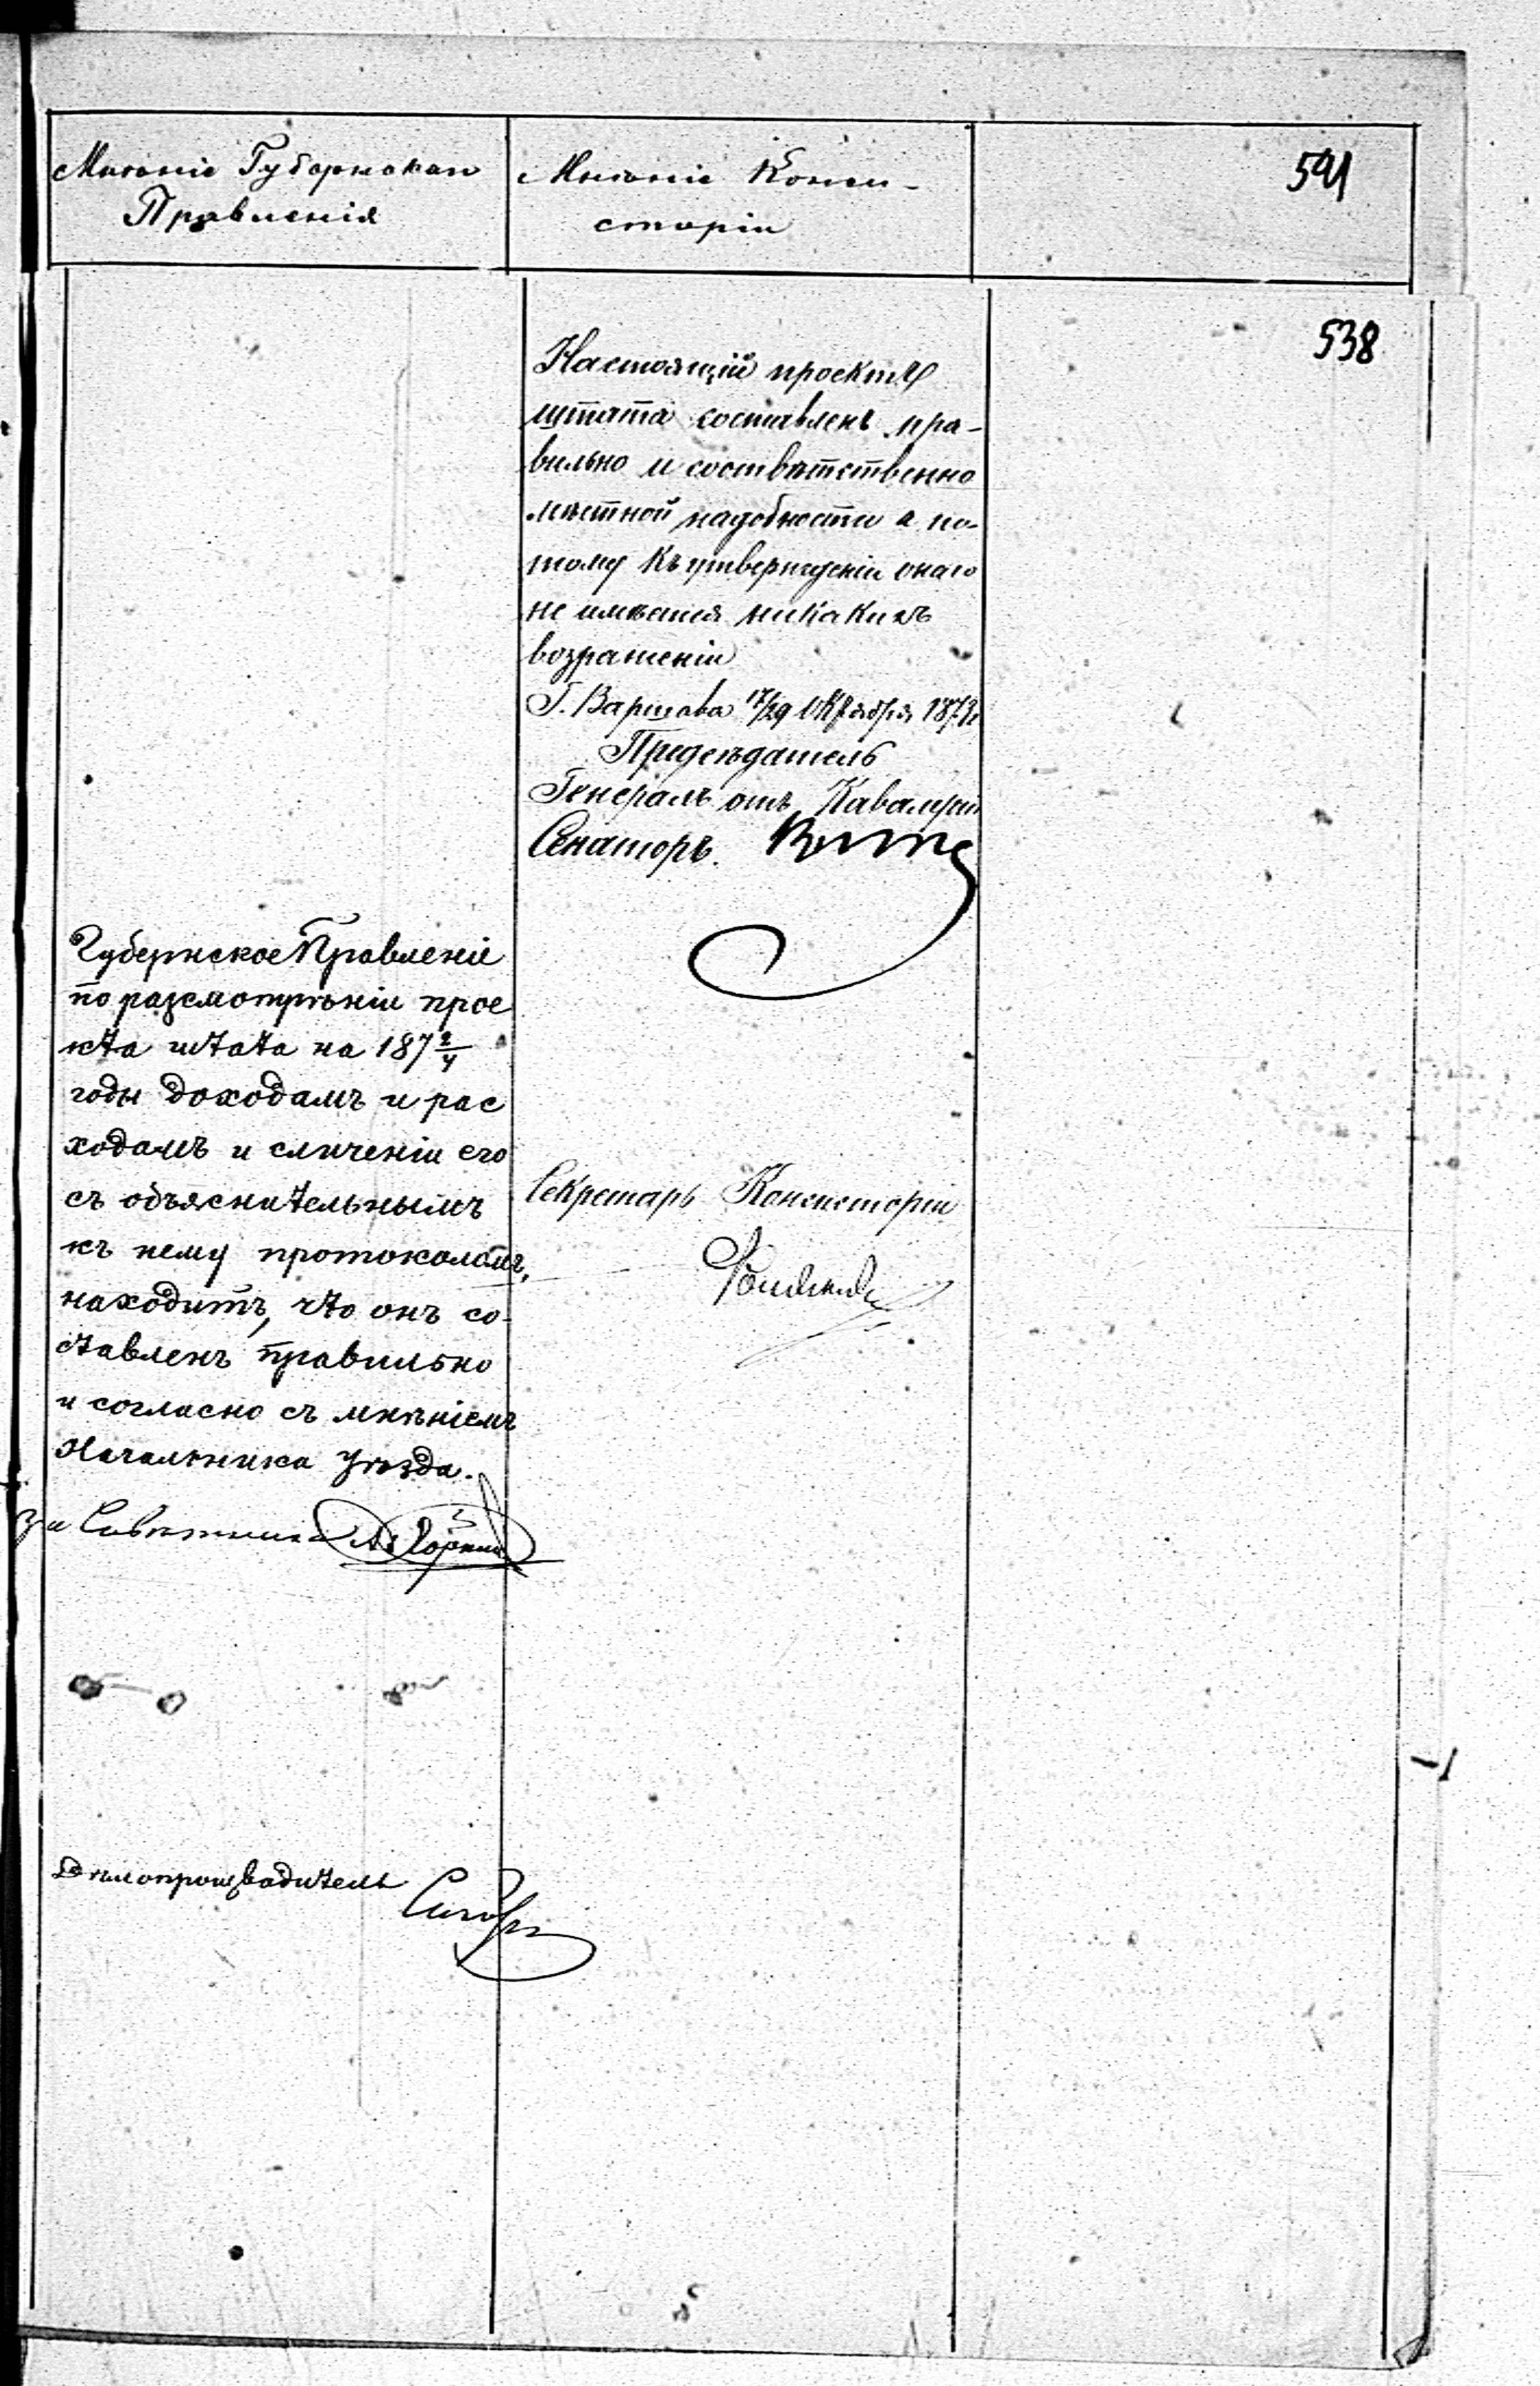 Мнѣніе Губернскаго
Правленія
Мнѣніе Конси-
сторіи
591
538
Настоящій проектъ
штата составленъ пра-
вильно и соотвѣтственно
мѣстной надобности а по-
тому къ утвержденіи онаго
не имѣется никакихъ
возраженіи
Г. Варшава 17/29 Октября
Предсѣдатель
Генералъ отъ Кавалеріи
Сенаторъ.
Секретарь Консисторіи
Губернское Правленіе
по разсмотрѣніи прое
кта штата на 187 2/4
годы доходамъ и рас
ходамъ и сличеніи его
съ объяснительнымъ
къ нему протоколомъ,
находитъ, что онъ со-
ставленъ правильно
и согласно съ мнѣніемъ
Начальника Уѣзда.
За Совѣтника
Дѣлопроизводитель